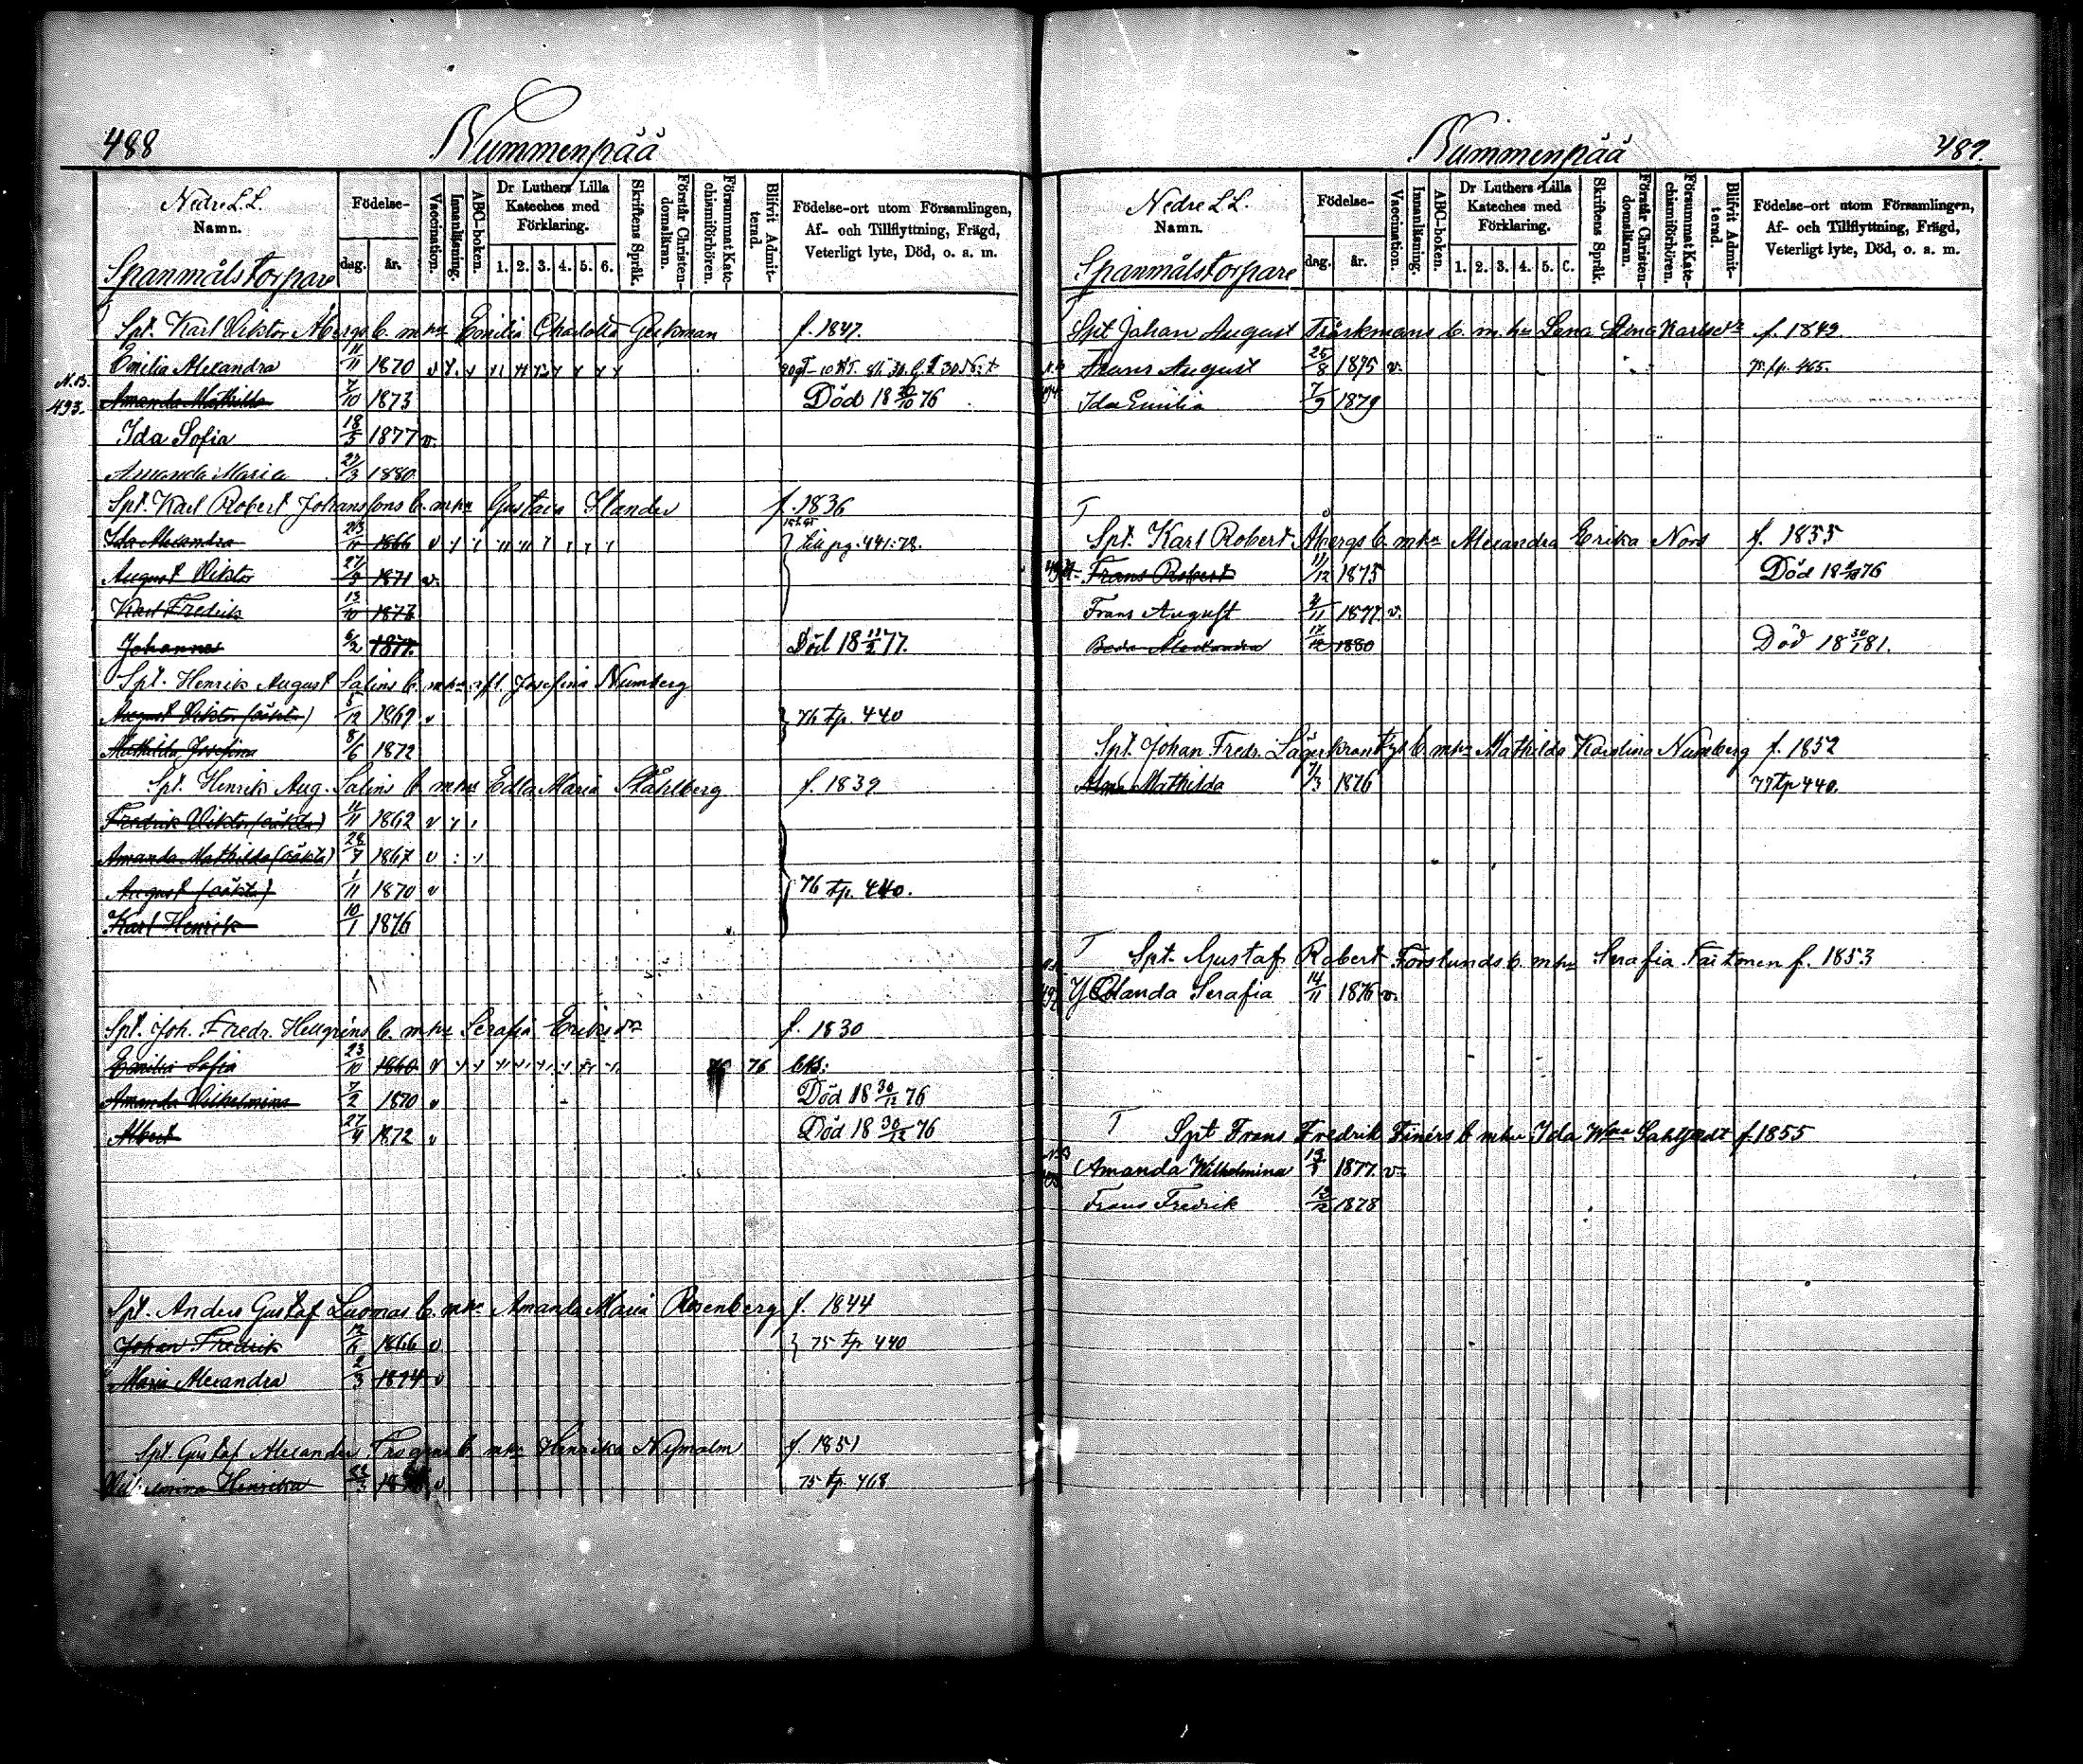 488
Nummenpää
Nedre L.L.
Namn.
Födelse-
dag.
år.
Vaccination.
Innanläsning.
ABC-boken.
Dr Luthers Lilla
Kateches med
Förklaring.
1. 2. 3. 4. 5. 6.
Skriftens Språk.
Förstår Christen-
domsläran.
Försummat Kate-
chismiförhören.
Blifvit Admit-
terad.
Födelse-ort utom Församlingen,
Af- och Tillflyttning, Frägd,
Veterligt lyte, Död, o. a. m.
Spanmålstorpare
Spt. Karl Viktor Åbergs b. m hu Emilia Charlotta f. 1847.
Emilia Alexandra 11/11 1870 v
N.13.
493. Amanda Mathilda 7/10 1873 Död 18 /10 76
Ida Sofia 18/5 1877 v.
Amanda Maria 27/3 1880
Spt. Karl Robert Johanssons b. m hu Gustava Slander f. 1836
Ida Alexandra 1866 v till pg. 441:78.
August Viktor 1871 v.
Karl Fredrik 13/10
Johannes 6/2 1877. Död 18 11/2 77.
Spt. Henrik August Salins b. m hu afl. Josefina Numberg
August Viktor (oäkta) 5/12 1869 v 76 tp. 440
Mathilda Josefina 8/6 1872
Spt. Henrik Aug. Salins b. m hu Edla Maria Ståhlberg f. 1839
Fredrik Viktor (oäkta) 11/11 1862 v
Amanda Mathilda (oäkta) 28/7 1867 v
August (oäkta) 1/11 1870 v 76 tp. 440.
Karl Henrik 10/1 1876
Spt. Joh. Fredr. Hellgréns b. m hu Serafia Eriksdr f. 1830
Emilia Sofia 23/10 1860 v 76
Amanda Vilhelmina 7/2 1870 v Död 18 30/12 76
Albert 27/4 1872 v Död 18 30/12 76
Spt. Anders Gustaf Luomas b. m hu Amanda Maria Rosenberg f. 1844
Johan Fredrik 12/6 1866 v 75 tp 440
Maria Alexandra 2/3 1874 v
Spt. Gustaf Alexander b m hu Henrika Nymalm f. 1851
Vilhelmina Henrika v 75 tp. 468
Nummenpää
489.
Nedre L.L.
Namn.
Födelse-
dag.
år.
Vaccination.
Innanläsning.
ABC-boken.
Dr Luthers Lilla
Kateches med
Förklaring.
1. 2. 3. 4. 5. 6.
Skriftens Språk.
Förstår Christen-
domsläran.
Försummat Kate-
chismiförhören.
Blifvit Admit-
terad.
Födelse-ort utom Församlingen,
Af- och Tillflyttning, Frägd,
Veterligt lyte, Död, o. a. m.
Spanmålstorpare
Spt Johan August Träskmans b. m. hu Lena Stena Karlsdr f. 1849.
Frans August 25/8 1875 v. 75. fp. 465.
Ida Emilia 7/9 1879
T
Spt. Karl Robert Åbergs b. m hu Alexandra Erika Nors f. 1855
Frans Robert 11/12 1875 Död 18 76
Frans August 2/11 1877. v.
Beda Alexandra 17/12 1880 Död 18 30/1 81.
Spt. Johan Fredr. Lagerkrantzs b. m hu Mathilda Karolina Numberg f. 1852
Alma Mathilda 7/3 1876 77 tp 440.
T
Spt. Gustaf Robert Forslunds b. m hu Serafia f. 1853
Yolanda Serafia 14/11 1876 v.
T
Spt Frans Fredrik Finérs b m hu Ida Wma f. 1855
Amanda Wilhelmina 1877. v
Frans Fredrik 13/12 1878